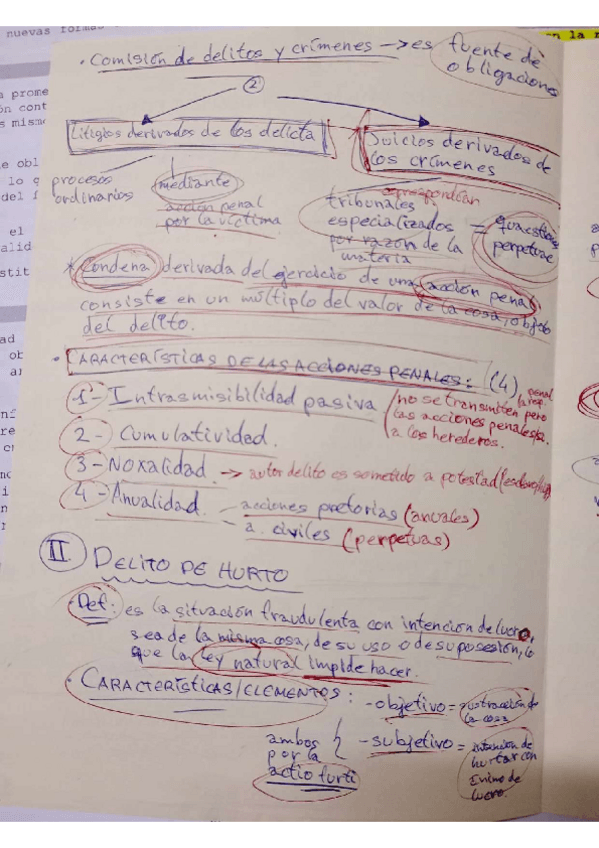 nuevas formas
· Comisión de delitos y crímenes → es fuente de obligaciones
②
Litigios derivados de los delicta
Juicios derivados de los crímenes
procesos ordinarios
mediante acción penal por la víctima
correspondían
tribunales especializados por razón de la materia = quaestiones perpetuae
* Condena derivada del ejercicio de una acción penal
consiste en un múltiplo del valor de la cosa, objeto
del delito.
· CARACTERÍSTICAS DE LAS ACCIONES PENALES: (4)
1- Intrasmisibilidad pasiva / no se transmiten pero
las acciones penales
a los herederos.
2- Cumulatividad.
3- Noxalidad → autor delito es sometido a potestad
4- Anualidad. - acciones pretorias (anuales)
- a. civiles (perpetuas)
II DELITO DE HURTO
Def: es la situación fraudulenta con intención de lucro,
sea de la misma cosa, de su uso o de su posesión, lo
que la ley natural impide hacer.
· CARACTERÍSTICAS/ELEMENTOS: - objetivo = sustracción de la cosa
- subjetivo = intención de
hurtar con
ánimo de
lucro.
ambos
por la
actio furti